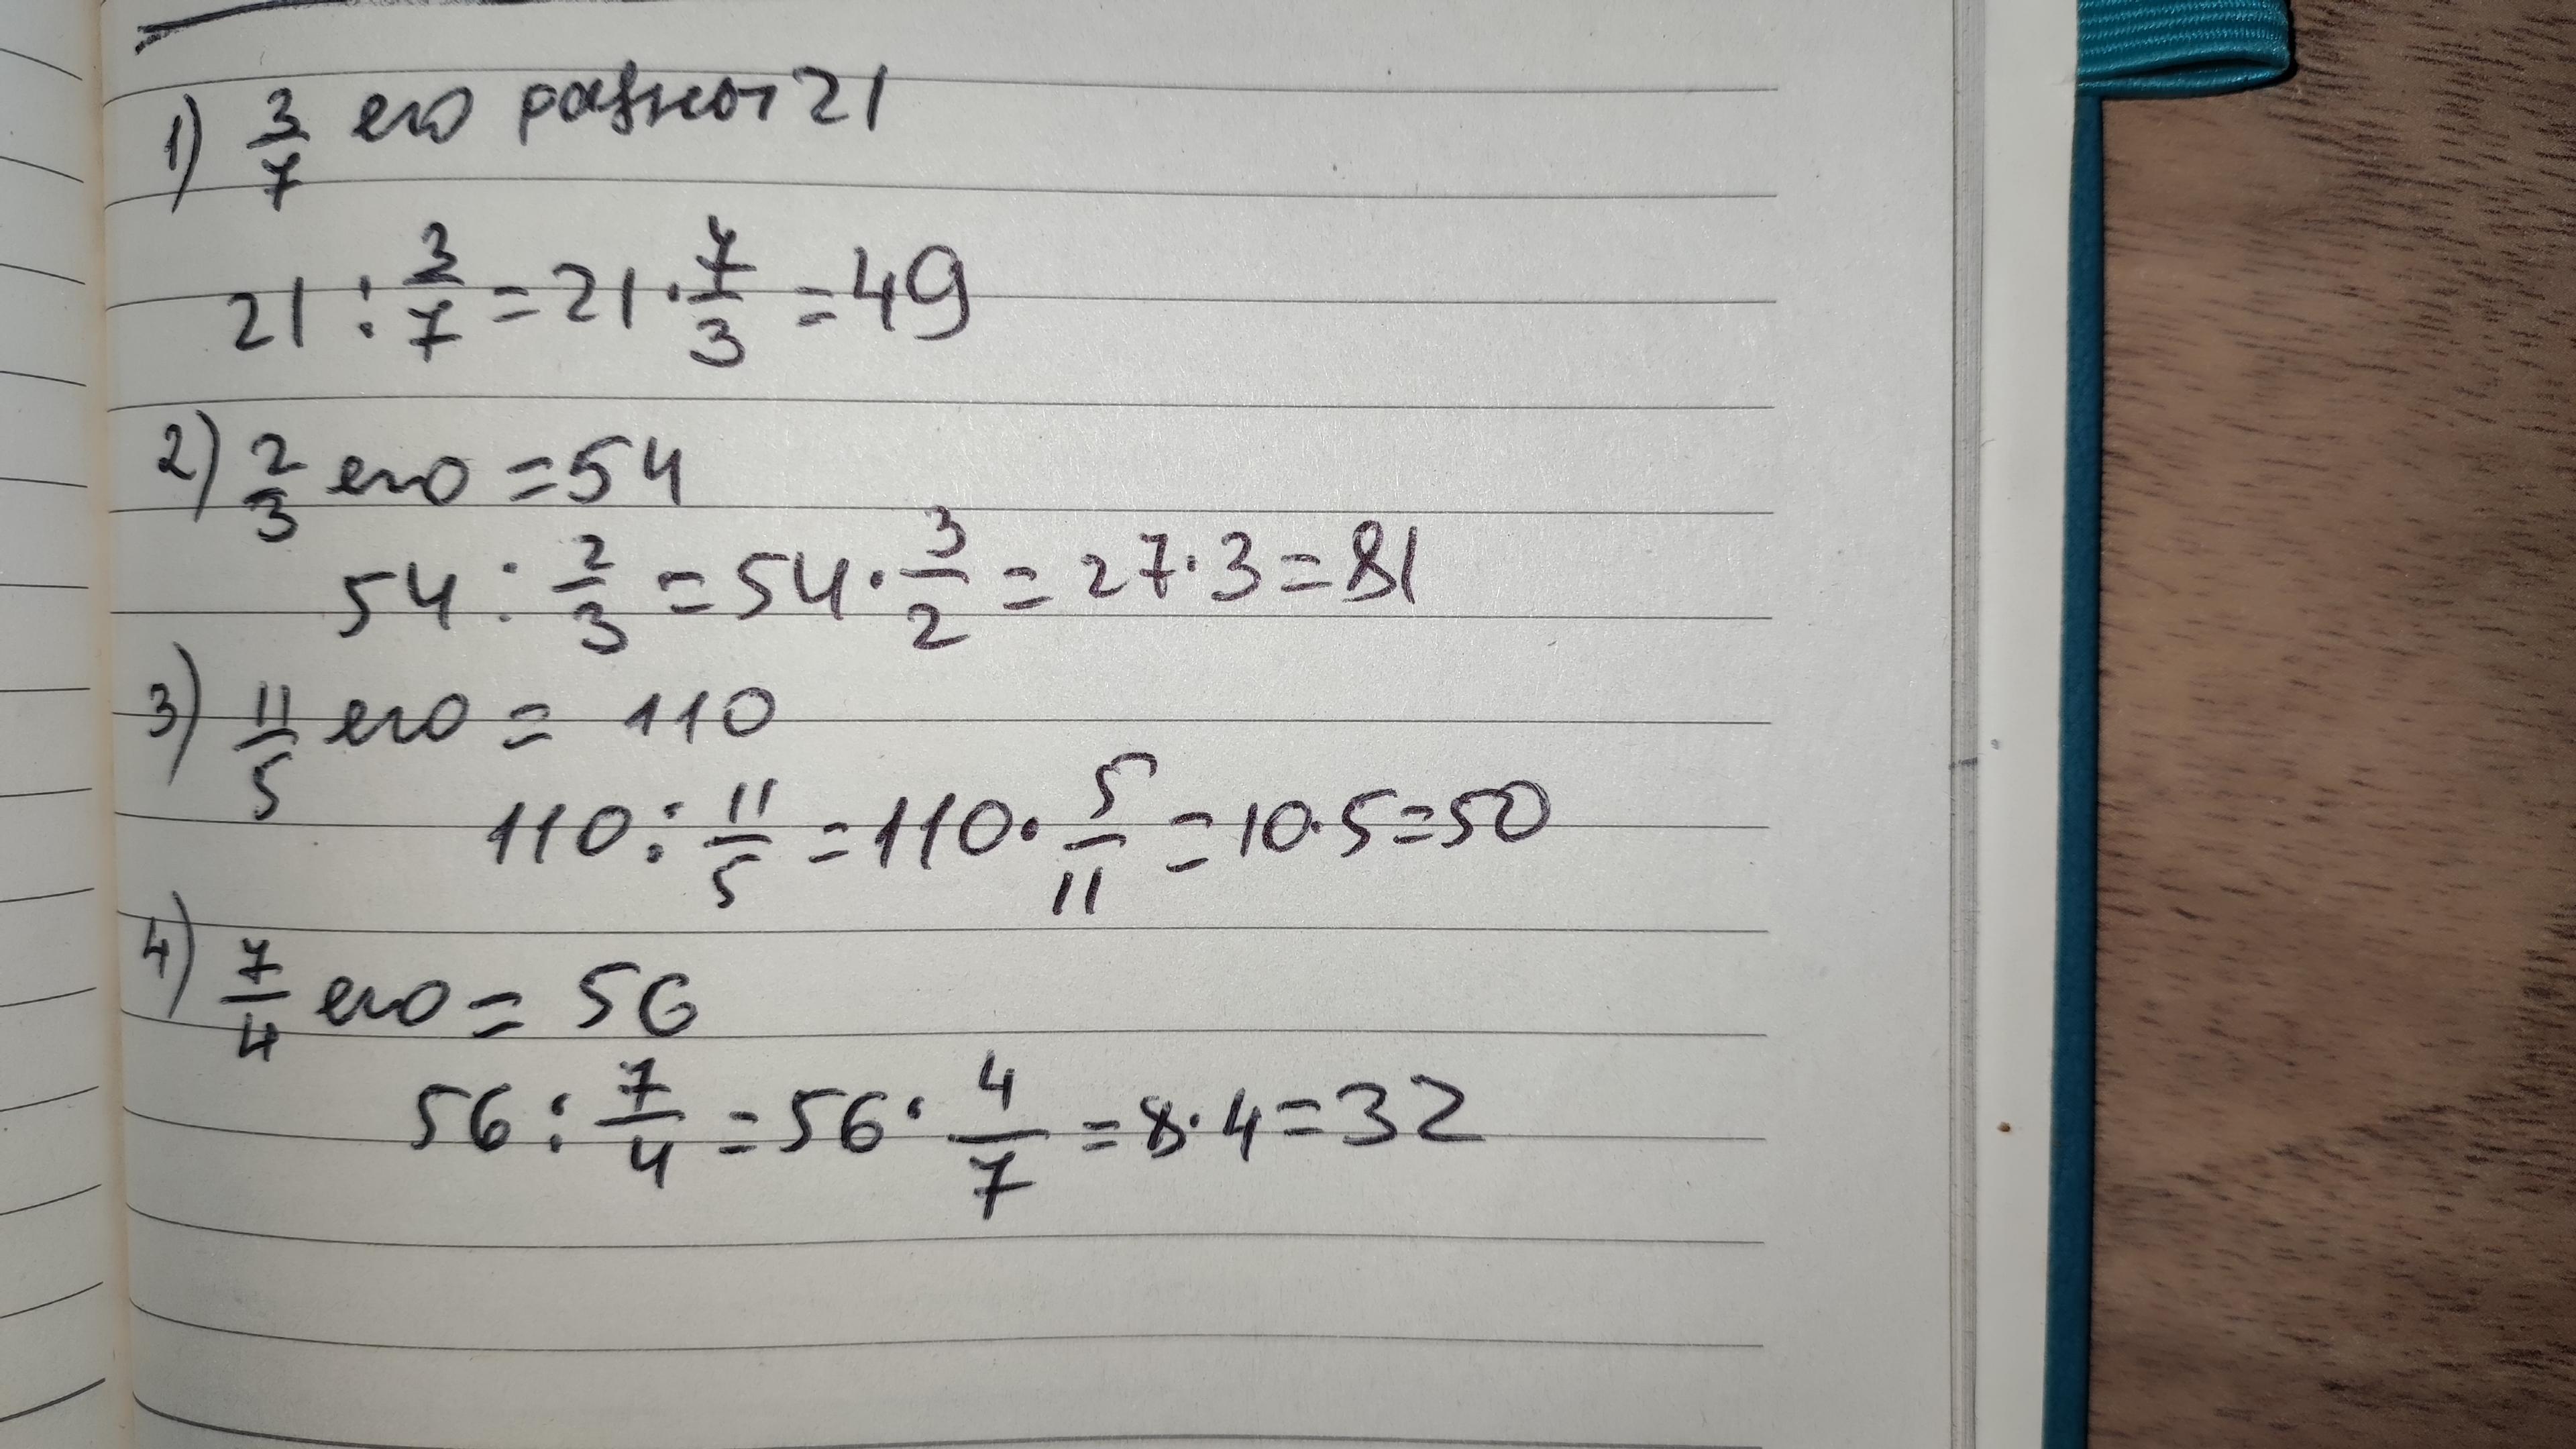 1) 3/7 его равност 21
21 : 3/7 = 21 · 7/3 = 49
2) 2/3 его = 54
54 : 2/3 = 54 · 3/2 = 27 · 3 = 81
3) 11/5 его = 110
110 : 11/5 = 110 · 5/11 = 10 · 5 = 50
4) 7/4 его = 56
56 : 7/4 = 56 · 4/7 = 8 · 4 = 32